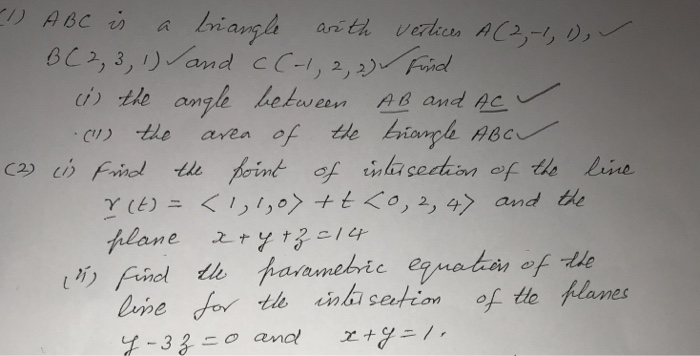 (1) ABC is a triangle with vertices A(2,-1, 1), ✓
B(2, 3, 1) ✓ and C(-1, 2, 2) ✓ Find
(i) the angle between AB and AC ✓
(ii) the area of the triangle ABC ✓
(2) (i) Find the point of intersection of the line
r(t) = <1,1,0> + t <0, 2, 4> and the
plane x + y + z = 14
(ii) find the parametric equation of the
line for the intersection of the planes
y - 3z = 0 and x + y = 1.